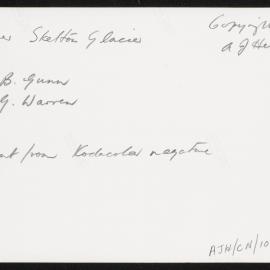 er Skelton Glacier
Copyrig
A J He
B. Gunn
G. Warren
nt from Kodacolor negative
AJH/CN/10